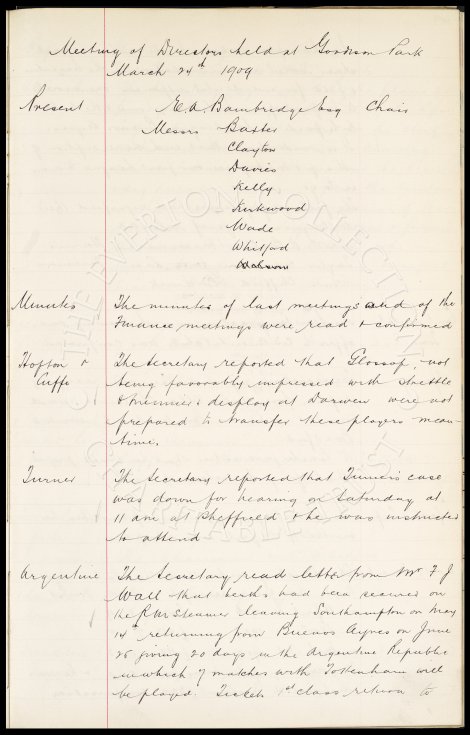 Meeting of Directors held at Goodison Park
March 24th 1909
Present E.A. Bainbridge Esq Chair
Messrs Baxter
Clayton
Davies
Kelly
Kirkwood
Wade
Whitford
Minutes The minutes of last meetings and of the
Finance meetings were read & confirmed
Hofton &
Cuffe
The Secretary reported that Glossop, not
being favorably impressed with
display at Darwen were not
prepared to transfer these players mean-
time.
Turner The Secretary reported that Turner's case
was down for hearing on Saturday at
11 am at Sheffield & he was instructed
to attend
Argentine The Secretary read letter from Mr F J
Wall that berths had been secured on
the R M Steamer leaving Southampton on May
14th returning from Buenos Ayres on June
26 giving 20 days in the Argentine Republic
in which 7 matches with Tottenham will
be played. Tickets 1st class return to
THE EVERTON COLLECTION